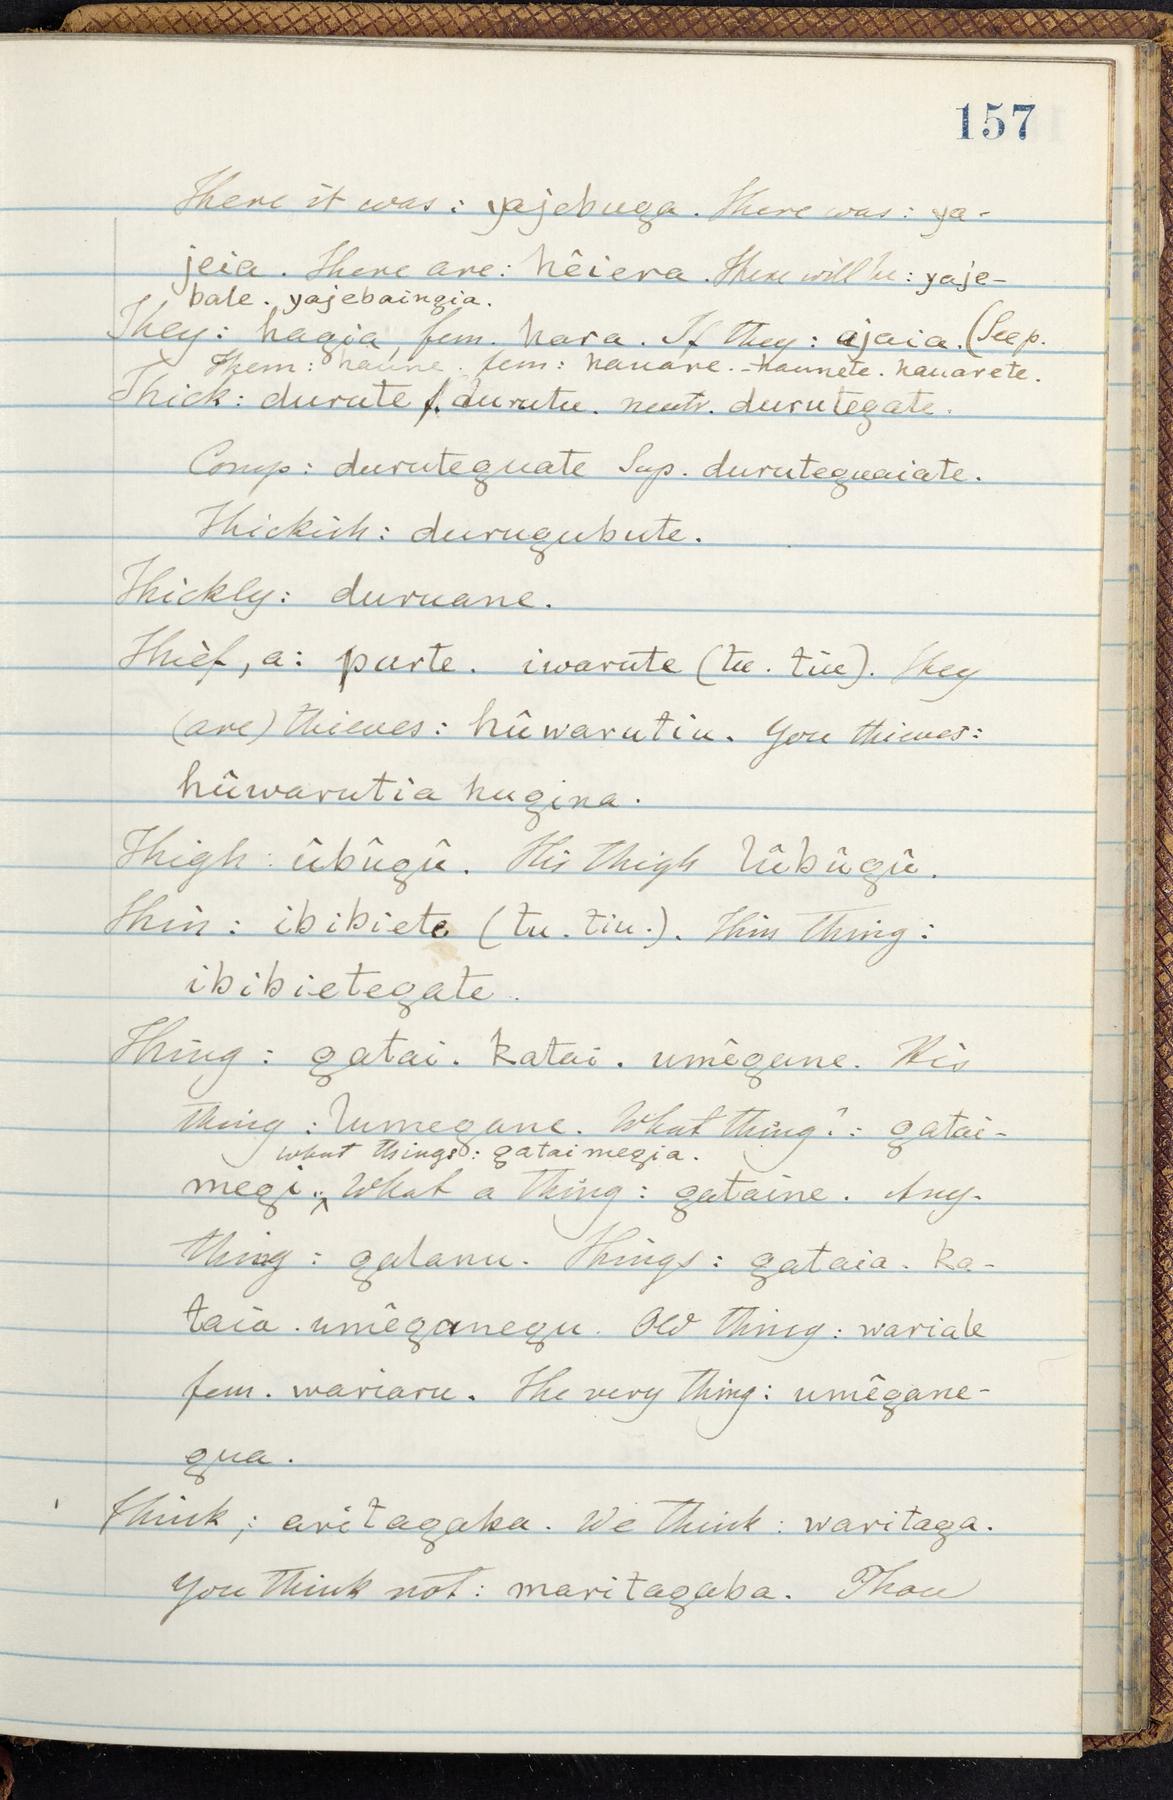 157
There it was: yajebuga. There was: ya-
jeia. There are: hêiera. There will be: yaje-
bale. yajebaingia.
They: hagia, fem. hara. If they: ajaia. (See p.
Them: haune. fem: hauare. - haunete. hauarete.
Thick: durute f. durutu. neutr. durutegate.
Comp: duruteguate Sup. duruteguaiate.
Thickish: durugubute.
Thickly: duruane.
Thief, a: purte. iwarute (tu. tiu). They
(are) thieves: hûwarutiu. You thieves:
hûwarutia hugina.
Thigh: ûbûgû. His thigh lûbûgû.
Thin: ibibiete (tu. tiu.). Thin thing:
ibibietegate.
Thing: gatai. katai. umêgane. His
thing: lumegane. What thing?: gatai-
what things: gataimegia.
megi. What a thing: gataine. Any-
thing: galanu. Things: gataia. ka-
taia. umêganegu. Old thing: wariale
fem. wariaru. The very thing: umêgane-
gua.
Think,: aritagaba. We think: waritaga.
You think not: maritagaba. Thou